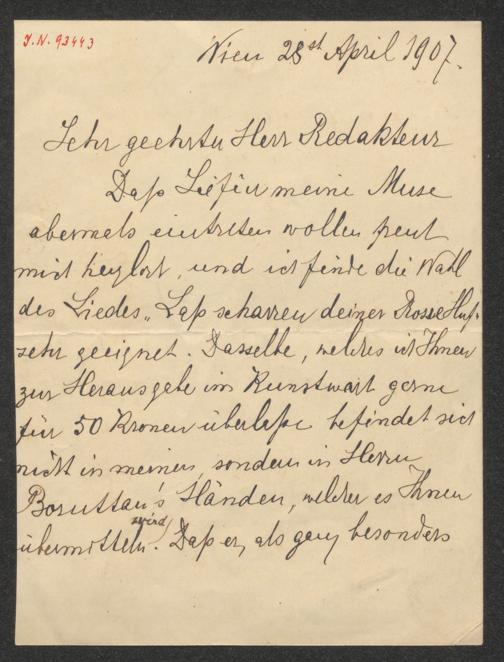 J. N. 93443
Wien 28st April 1907.
Sehr geehrter Herr Redakteur
Daß Sie für meine Muse
abermals eintreten wollen freut
mich herzlichst, und ich finde die Wahl
des Liedes „Laß scharren deiner Rosse Huf"
sehr geeignet. Dasselbe, welches ich Ihnen
zur Herausgabe im Kunstwart gerne
für 50 Kronen überlaße befindet sich
nicht in meinen, sondern in Herrn
Boruttau's Händen, welcher es Ihnen
übermitteln wird. Daß er, als ganz besonders